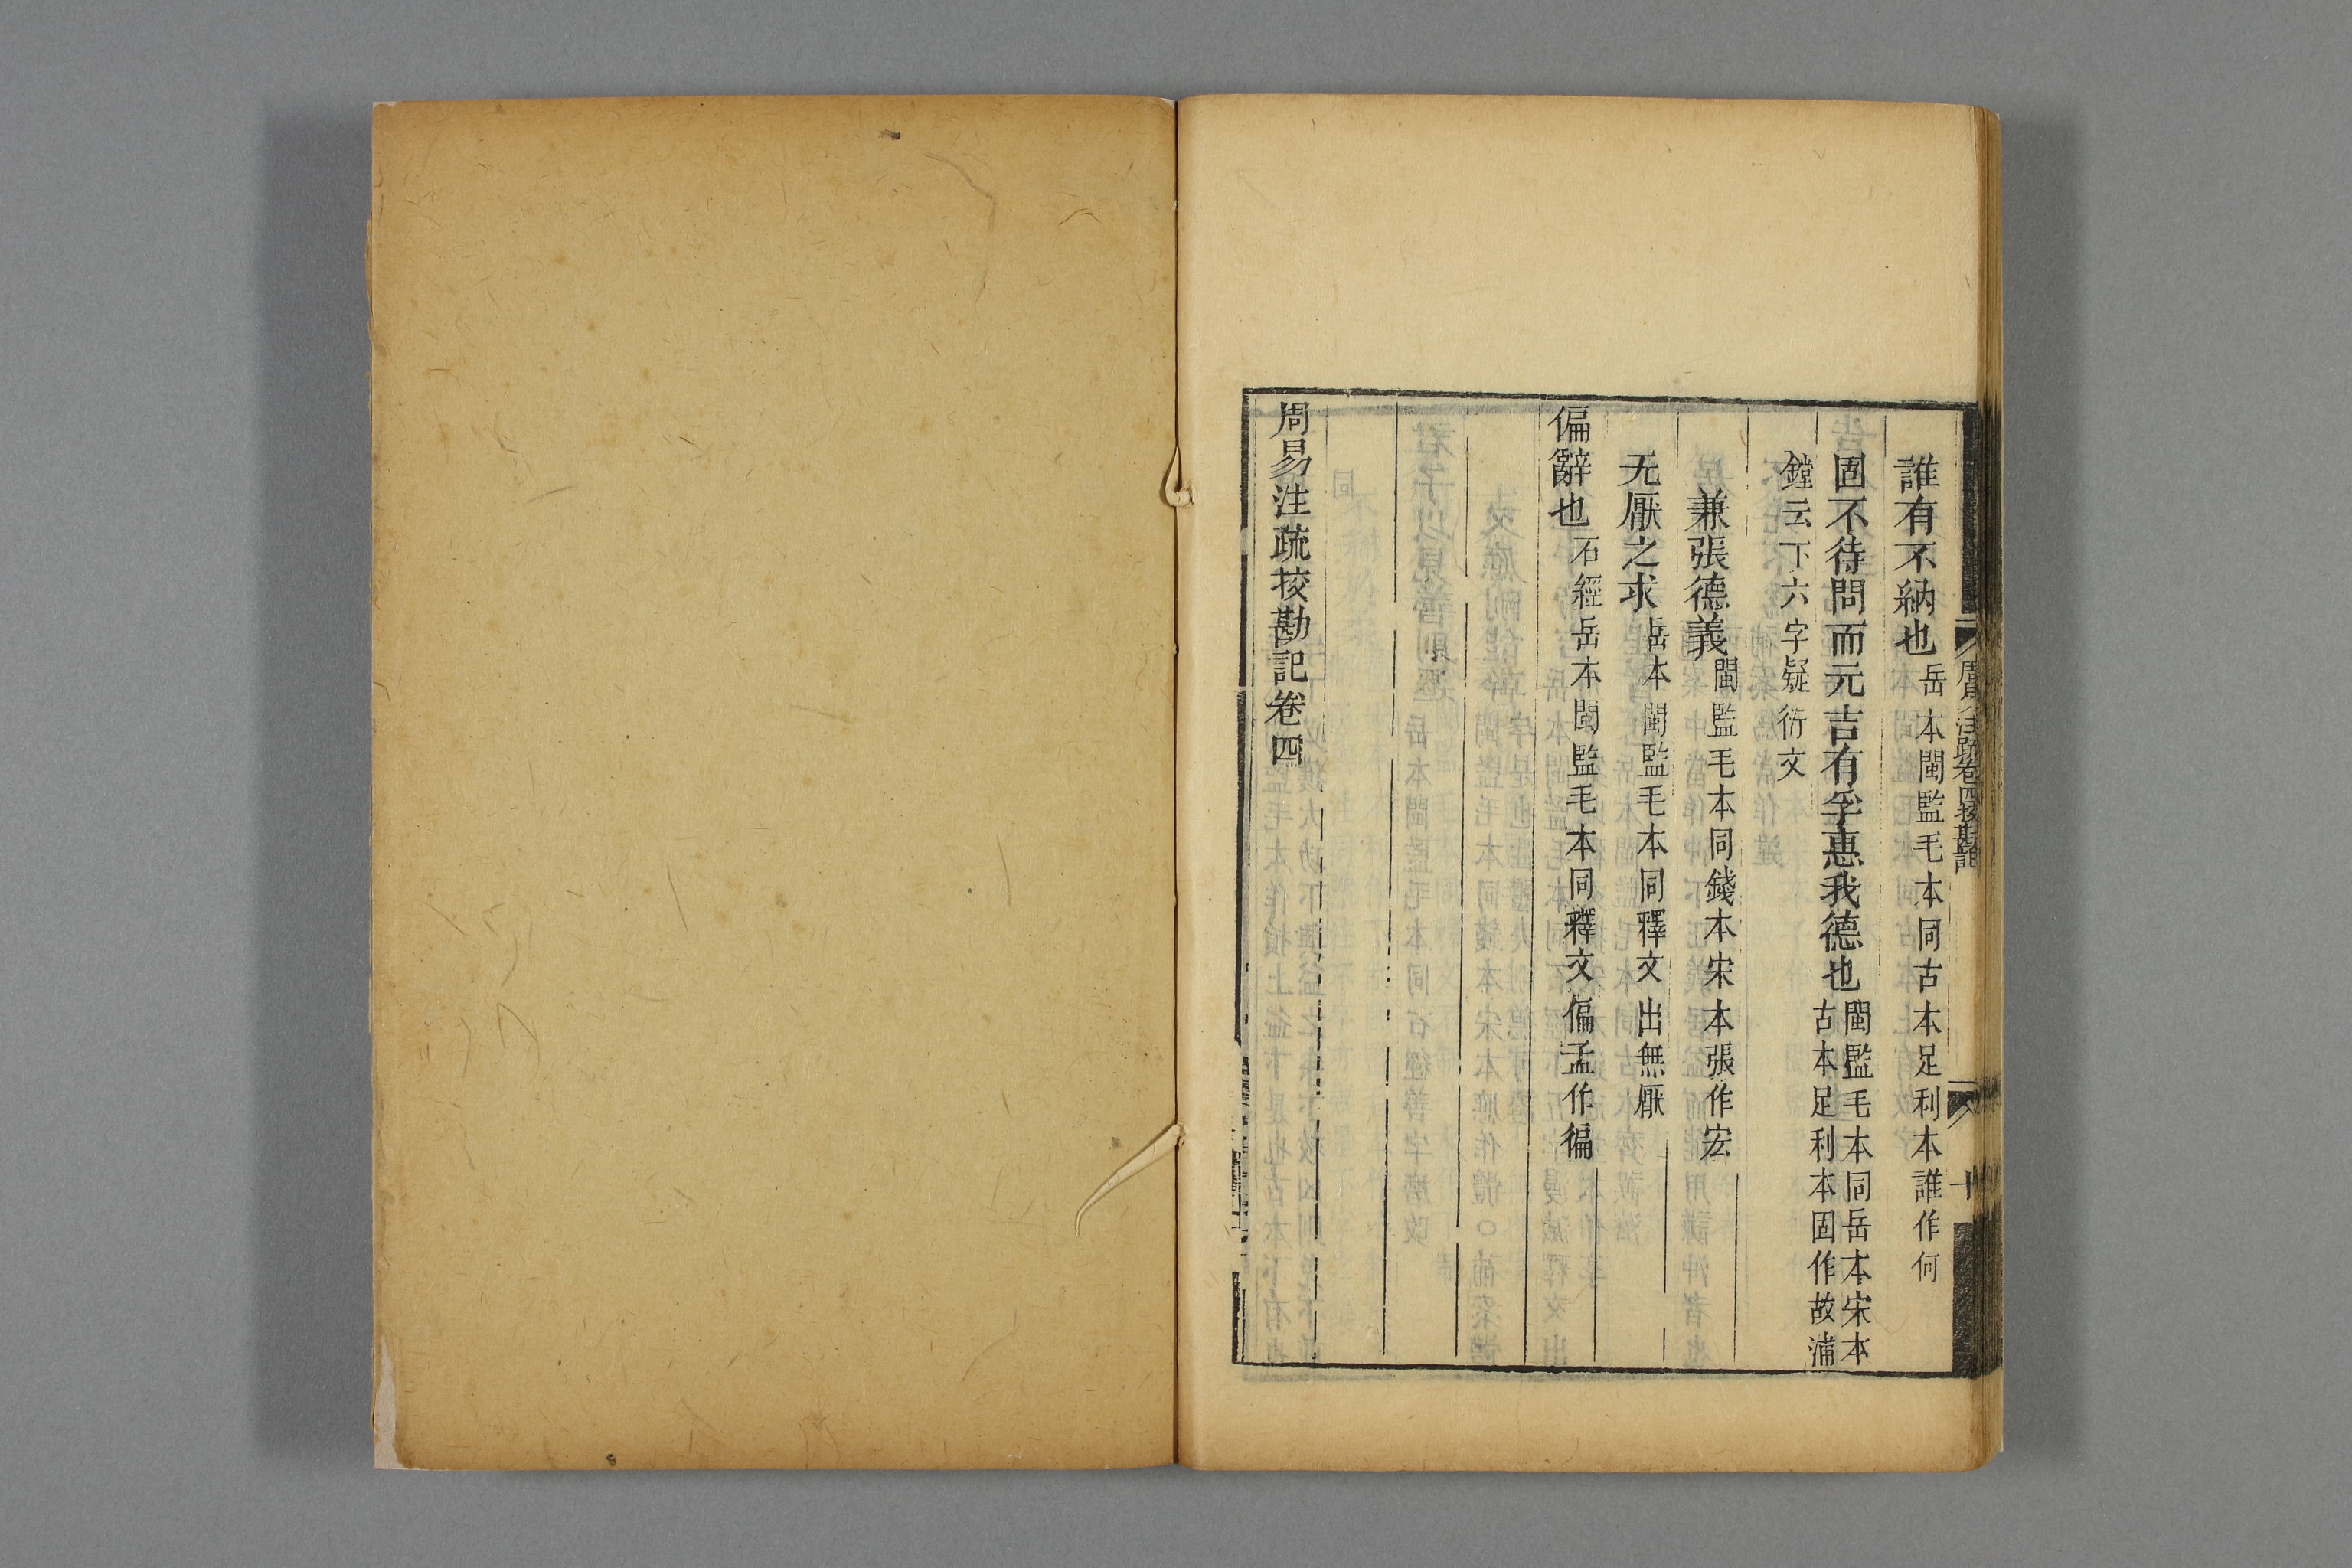 周易注疏卷四挍勘記
十
誰有不納也岳本閩監毛本同古本足利本誰作何
固不待問而元吉有孚惠我德也閩監毛本同岳本宋本古本足利本固作故浦
鏜云下六字疑衍文
兼張德義閩監毛本同錢本宋本張作宏
无厭之求岳本閩監毛本同釋文出無厭
偏辭也石經岳本閩監毛本同釋文偏孟作徧
周易注疏挍勘記卷四